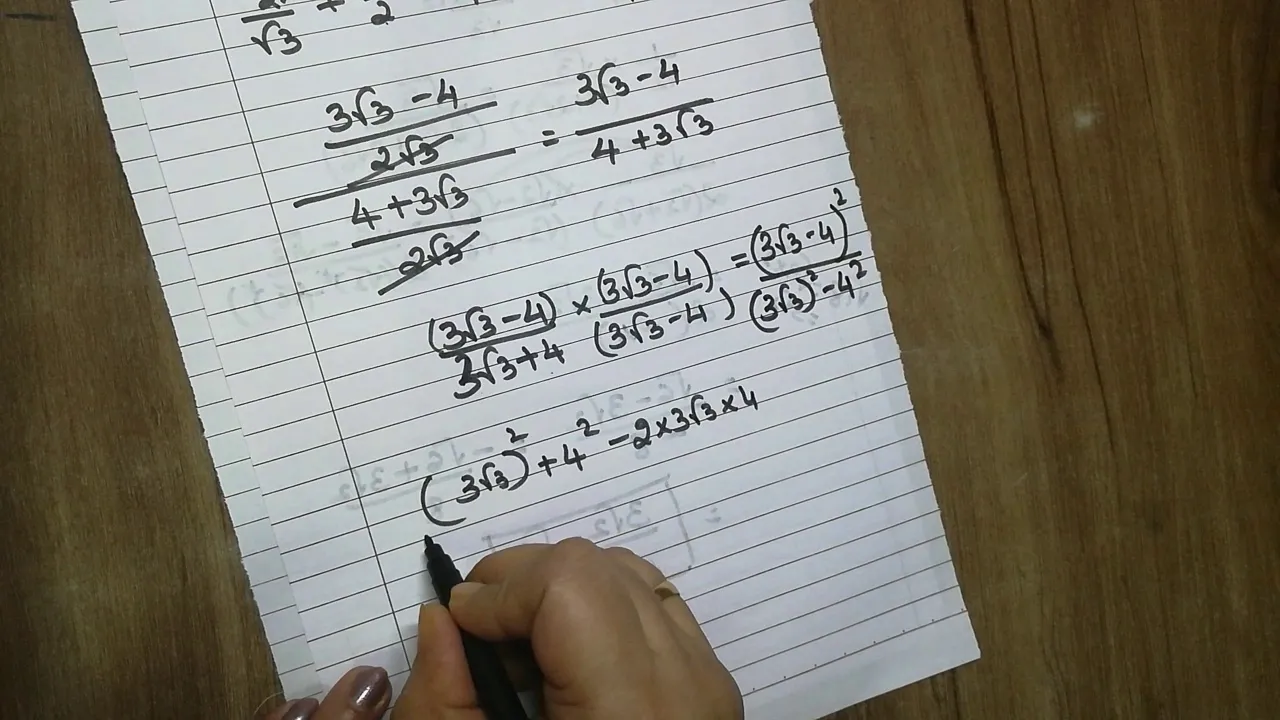 √3 + 2
3√3 - 4
2√3
4 + 3√3
2√3
= 3√3 - 4
4 + 3√3
(3√3 - 4) × (3√3 - 4) = (3√3 - 4)²
3√3 + 4 (3√3 - 4) (3√3)² - 4²
(3√3)² + 4² - 2 × 3√3 × 4